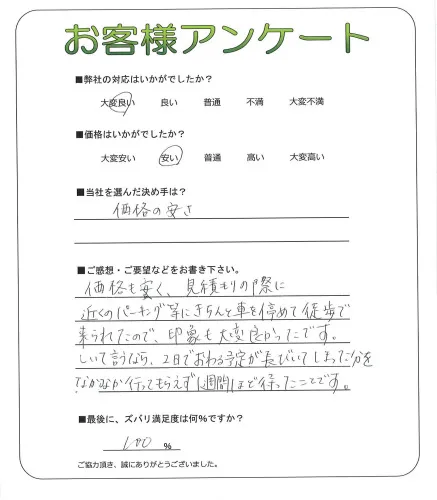 お客様アンケート
■弊社の対応はいかがでしたか?
大変良い 良い 普通 不満 大変不満
■価格はいかがでしたか?
大変安い 安い 普通 高い 大変高い
■当社を選んだ決め手は?
価格の安さ
■ご感想・ご要望などをお書き下さい。
価格も安く、見積もりの際に
近くのパーキング等にきちんと車を停めて徒歩で
来られたので、印象も大変良かったです。
しいて言うなら、2日でおわる予定が長びいてしまった分を
なかなか行ってもらえず1週間ほど待ったことです。
■最後に、ズバリ満足度は何%ですか?
100 %
ご協力頂き、誠にありがとうございました。